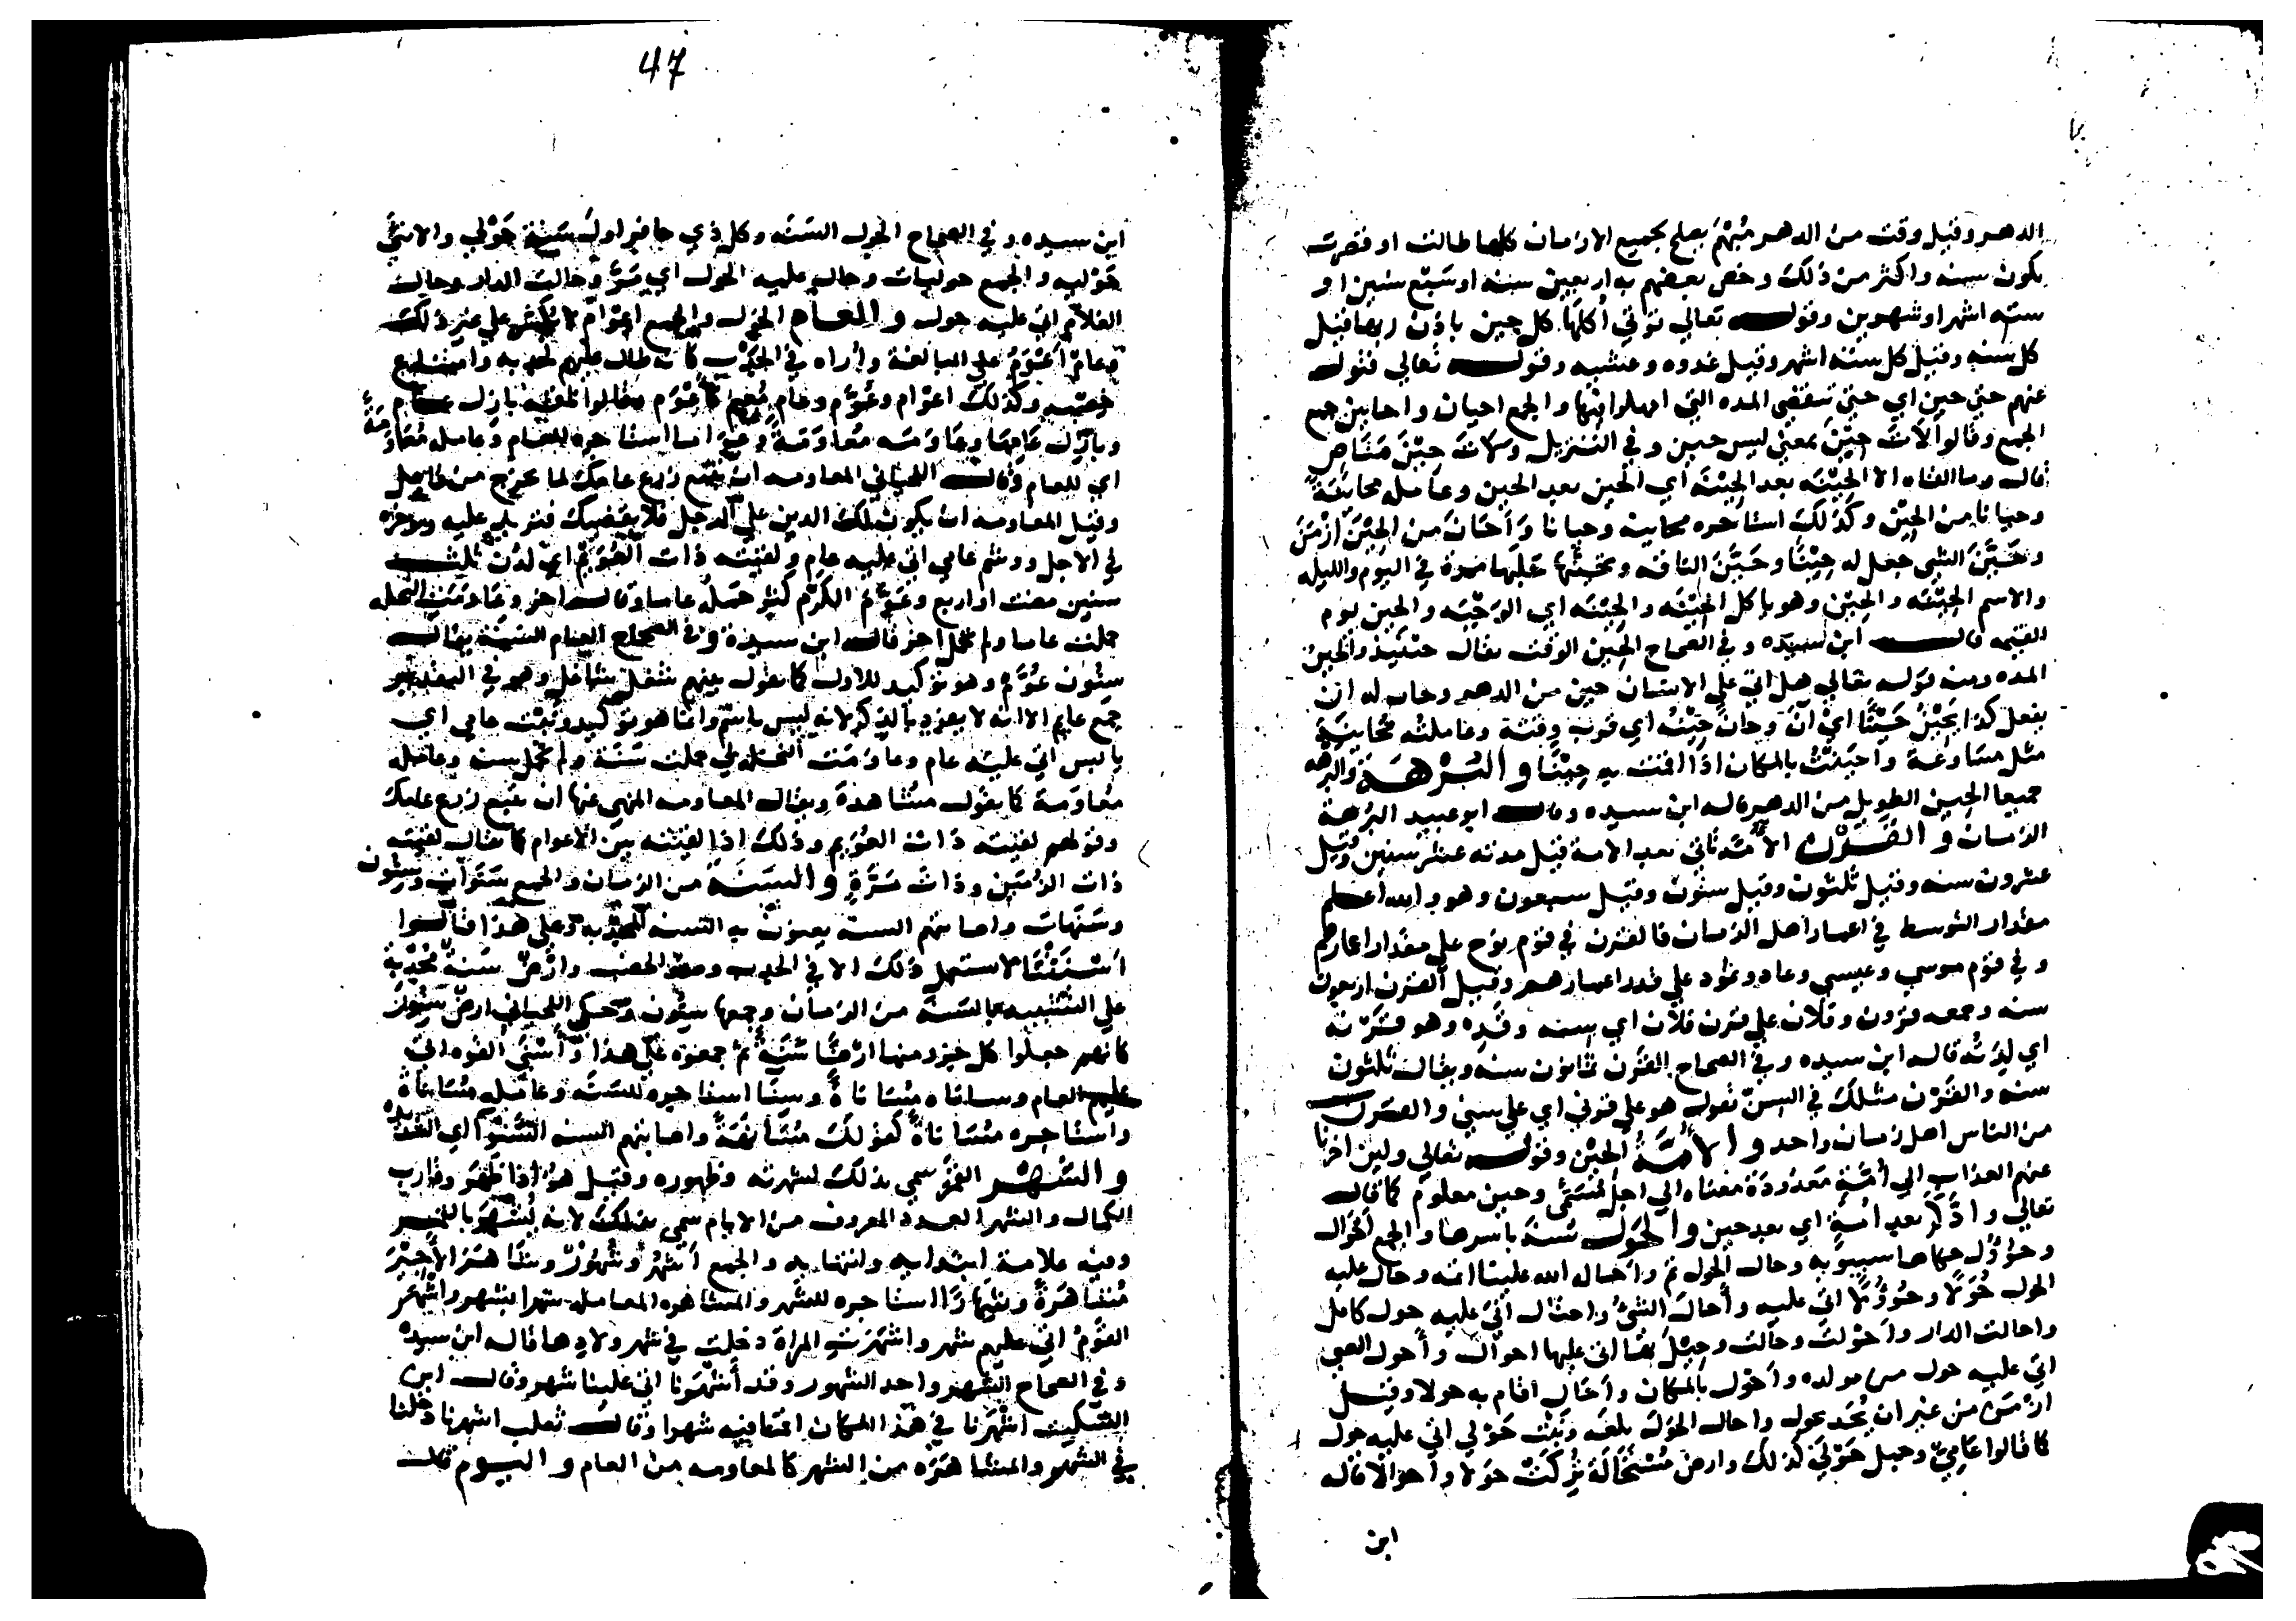 الدهر وقيل وقت من الدهر مُبْهَم يصلح لجميع الازمان كلها طالت او قصرت
يكون سنه واكثر من ذلك وخص بعضهم به اربعين سنه او سَبْع سنين او
سته اشهر او شهرين وقوله تعالى تؤتي أكلها كل حين باذن ربها قيل
كل سنه وقيل كل سته اشهر وقيل غدوه وعشيه وقوله تعالى فتول
عنهم حتى حين اي حتى تنقضي المده التي امهلوا فيها والجمع احيان واحايين جمع
الجمع وقالوا لَاتَ حِيْنَ بمعنى ليس حين وفي التنزيل ولات حِيْنَ مَنَاصٍ
قال وما القاه الا الحِيْنَه بعد الحِيْنَه أي الحين بعد الحين وعامله محاينَةً
وحيانا من الحِيْن وكذلك استاجره محاينه وحيانا وَأَحَانَ من الحِيْن أَزْمَنَ
وحَيَّنَ الشي جعل له حِيْنًا وحَيَّنَ الناقه وتحينها حَلَبها مرة في اليوم والليله
والاسم الحِيْنَه والحِيْن وهو ياكل الحِيْنَه والحَيْنَه اي الوَجْبَه والحين يوم
القيمه قال ابن سيده وفي الصحاح الحِين الوقت يقال حينئذ والحِينُ
المده ومنه قوله تعالى هل اتى على الانسان حين من الدهر وحان له ان
يفعل كذا يَحِيْنُ حَيْنًا اي آنَ وحانَ حِيْنُه اي قرب وقته وعاملته مُحَايَنَةً
مثل مساوَعَة وأَحْيَنْتُ بالمكان اذا اقمت به حِيْنًا والبُرْهَة والبَرْهه
جميعا الحين الطويل من الدهر قاله ابن سيده وقال ابو عبيد البُرْهة
الزمان والقَرْن الأُمَّه تأتي بعد الامة قيل مدته عشر سنين وقيل
عشرون سنه وقيل ثلثون وقيل ستون وقيل سبعون وهو والله اعلم
مقدار التوسط في اعمار اهل الزمان فالقرن في قوم نوح على مقدار اعمارهم
وفي قوم موسي وعيسي وعاد وثمود على قدر اعمارهم وقيل القرن اربعون
سنه وجمعه قرون وفلان على قرن فلان اي سنه وقَدِه وهو قَرْنه
اي لِدَتُه قاله ابن سيده وفي الصحاح القَرْن ثمانون سنه ويقال ثلثون
سنه والقَرْن مثلك في السِنّ تقول هو على قرني اي على سني والقَرْن
من الناس اهل زمان واحد والأُمَّةُ الحِيْن وقوله تعالى ولين اخرنا
عنهم العذاب الى أُمَّةٍ مَعْدُودَة معناه الى اجل مُسَمًّى وحين معلوم كما قال
تعالى وادَّكَر بعد أُمَّةٍ اي بعد حين والحَوْل سَنةٌ باسرها والجمع أَحْوَال
وحُؤُوْل حكاها سيبويه وحال الحول تم وأحال الله علينا اتمه وحال عليه
الحول حَوْلًا وحُؤُوْلًا اتى عليه وأَحالَ الشئُ واحتال أتى عليه حول كامل
واحالت الدار وأَحْولت وحالت وحِيْلَ بها اتى عليها احوال وأَحول الصبي
اتى عليه حول من مولده وأحول بالمكان وأحَال اقام به حولا وقيل
ازمن من غير ان يُحَد بحول واحال الحَوْلَ بلغه ونَبْت حَوْلي اتى عليه حول
كما قالوا عَامِيّ وجمل حَوْلي كذلك وارض مُسْتَحَالَة تُرِكَتْ حولا وأحوالًا قاله
ابن
47
ابن سيده وفي الصحاح الحول السَنَه وكل ذي حافر اول سَنة حَوْلي والانثى
حَوْليه والجمع حوليات وحال عليه الحول اي مَرَّ وحالت الدار وحال
الغلام اتى عليه حول والعَام الحَوْل والجمع اعْوَام لا يُكَسَّر على غير ذلك
وعام أَعْوَمُ على المبالغة وأُراه في الجَدْب كانه طال عليهم لجدبه وامتناع
خصبه وكذلك اعْوَام وعُوَّم وعام مُعِيم كأَعْوَم وقالوا ناقة بازِل عام
وبازِل عَامِها وعَاوَمَه مُعاوَمَةً استاجره للعام وعامله مُعَاوَمَةً
اي للعام وقال اللحياني المعاومه ان تبيع زرع عامك لما يخرج من قابل
وقيل المعاومه ان يكون لك الدين على الرجل فلا يقضيك فتزيد عليه وتوخره
في الاجل ورسم عامي اتى عليه عام ولقيته ذات العُوَيم اي لدُن ثلث
سنين مضت او اربع وعَوَّمَ الكَرْم كثر حَمْلُه عاما وقل اخر وعَاوَمَتِ النخله
حملت عاما ولم تحمل اخر قاله ابن سيدة وفي الصحاح العام السَنَة يقال
سِنُون عُوَّم وهو توكيد للاول كما تقول بينهم شغل شاغل وهو في التقدير
جمع عايم الا انه لا يفرد بالذكر لانه ليس باسم وانما هو توكيد ونَبْت عامي اي
يابس اتى عليه عام وعاوَمَت النخله اي حملت سَنَة ولم تحمل سنه وعامله
مُعاوَمة كما يقول مشاهدة ويقال المعاومه المنهي عنها ان تبيع زرع عامك
وقولهم لقيته ذات العُوَيم وذلك اذا لقيته بين الاعوام كما يقال لقيته
ذات الزُمَين وذات مَرَّةٍ والسَنَةُ من الزمان والجمع سَنَوَات وسِنُون
وسَنَهات واصابتهم السنة يعنون به السنه المجدبه وعلى هذا قالوا
أَسْنَتُوا لا يستعمل ذلك الا في الجدب وضد الخصب وارْض سَنةٌ مُجْدِبَة
على التشبيه بالسَنة من الزمان وجمعها سِنُون وحكى اللحياني ارض سِنُون
كانهم جعلوا كل جزء منها ارْضًا سَنَةً ثم جمعوه على هذا وأَسْنَى القوم اتى
عليهم العام وساناه مُسَانَاةً وسِنَا استاجره للسَنَه وعامله مُسَانَاةً
واستاجره مُسَانَاةً كقولك مُسَانَهَةً واصابتهم السنه السَنْوَا اي الشديده
والشَهْر القَمَر سمي بذلك لشهرته وظهوره وقيل هو اذا ظَهَر وقارب
الكمال والشهر العدد المعروف من الايام سمي بذلك لانه يُشْهَر بالقمر
وفيه علامة ابتدايه وانتهايه والجمع أَشْهُر وشُهُوْر وشَاهَرَ الأَجِيْرَ
مُشَاهَرَةً وشِهَارًا استاجره للشهر والمشاهره المعامله شهرا بشهر وأَشْهَر
القَوْمُ اتى عليهم شهر واشهَرَتِ المراة دخلت في شهر ولادها قاله ابن سيده
وفي الصحاح الشهر واحد الشهور وقد أَشْهَرنا اتى علينا شهر وقال ابن
السكيت أشْهَرنا في هذا المكان اقمنا فيه شهرا وقال ثعلب اشهرنا دخلنا
في الشهر والمشاهَرَه من الشهر كالمعاومه من العام واليوم قلت